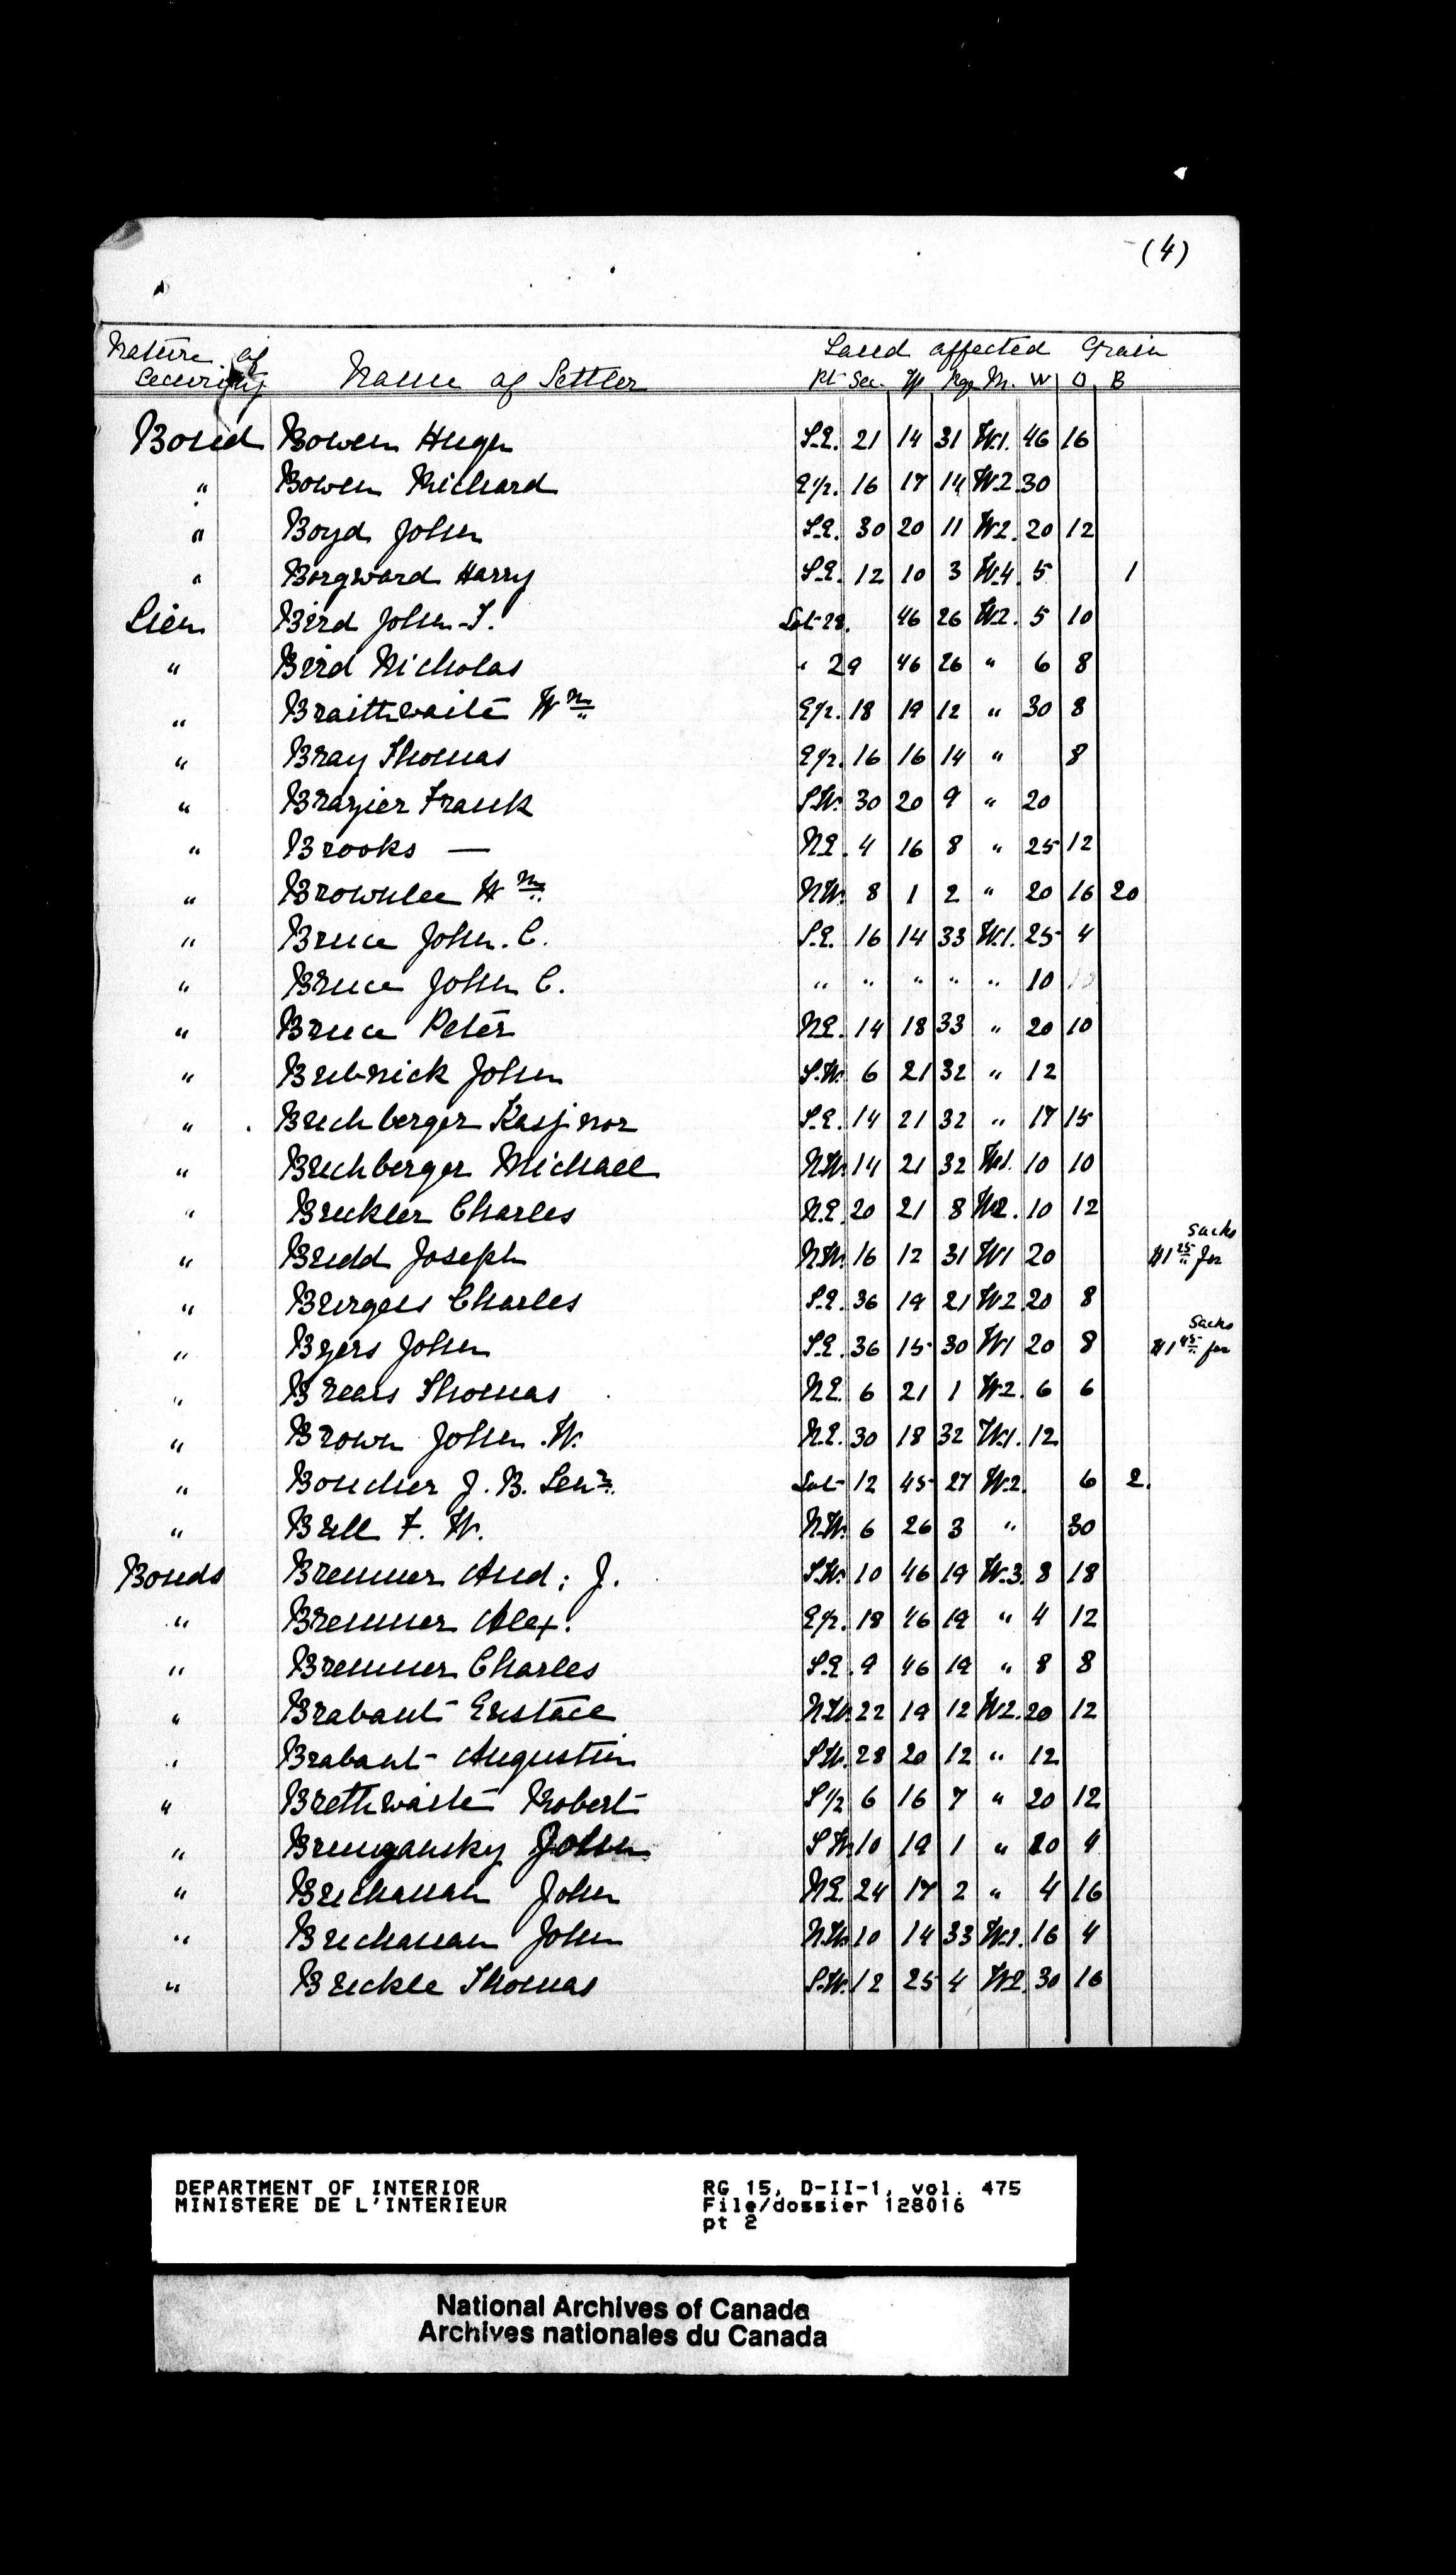 (4)
Nature of Land affected Grain
Security Name of Settler Pt Sec. Tp Rge M. W O B
Bond Bowen Hugh S.E. 21 14 31 W.1. 46 16
" Bowen Richard E 1/2. 16 17 14 W.2. 30
" Boyd John S.E. 30 20 11 W.2. 20 12
" Borgward Harry S.E. 12 10 3 W.4. 5 1
Lien Bird John T. Lot 28. 46 26 W.2. 5 10
" Bird Nicholas " 29 46 26 " 6 8
" Braithwaite Wm E 1/2. 18 19 12 " 30 8
" Bray Thomas E 1/2. 16 16 14 " 8
" Brazier Frank S.W. 30 20 9 " 20
" Brooks — N.E. 4 16 8 " 25 12
" Brownlee Wm N.W. 8 1 2 " 20 16 20
" Bruce John. C. S.E. 16 14 33 W.1. 25 4
" Bruce John C. " " " " " 10
" Bruce Peter N.E. 14 18 33 " 20 10
" Bubnick John S.W. 6 21 32 " 12
" Buchberger S.E. 14 21 32 " 17 15
" Buchberger Michael N.W. 14 21 32 W.1. 10 10
" Buckler Charles N.E. 20 21 8 W.2. 10 12
" Budd Joseph N.W. 16 12 31 W1 20 $1 25 for sacks
" Burgess Charles S.E. 36 19 21 W.2 20 8
" Byers John S.E. 36 15 30 W1 20 8 $1 45 for sacks
" Brears Thomas N.E. 6 21 1 W.2. 6 6
" Brown John .W. N.E. 30 18 32 W.1. 12
" Boucher J. B. Senr. Lot 12 45 27 W.2. 6 2.
" Bull F. W. N.W. 6 26 3 " 30
Bonds Bremner And: J. S.W. 10 46 19 W.3. 8 18
" Bremner Alex. E 1/2. 18 46 19 " 4 12
" Bremner Charles S.E. 9 46 19 " 8 8
" Brabant Eustace N.W. 22 19 12 W.2. 20 12
" Brabant Augustin S.W. 28 20 12 " 12
" Brethwaite Robert S 1/2 6 16 7 " 20 12
" John S.W. 10 19 1 " 20 4
" Buchanan John N.E. 24 17 2 " 4 16
" Buchanan John N.W. 10 14 33 W.1. 16 4
" Buckle Thomas S.W. 12 25 4 W.2. 30 16
DEPARTMENT OF INTERIOR RG 15, D-II-1, vol. 475
MINISTERE DE L'INTERIEUR File/dossier 128016
pt 2
National Archives of Canada
Archives nationales du Canada